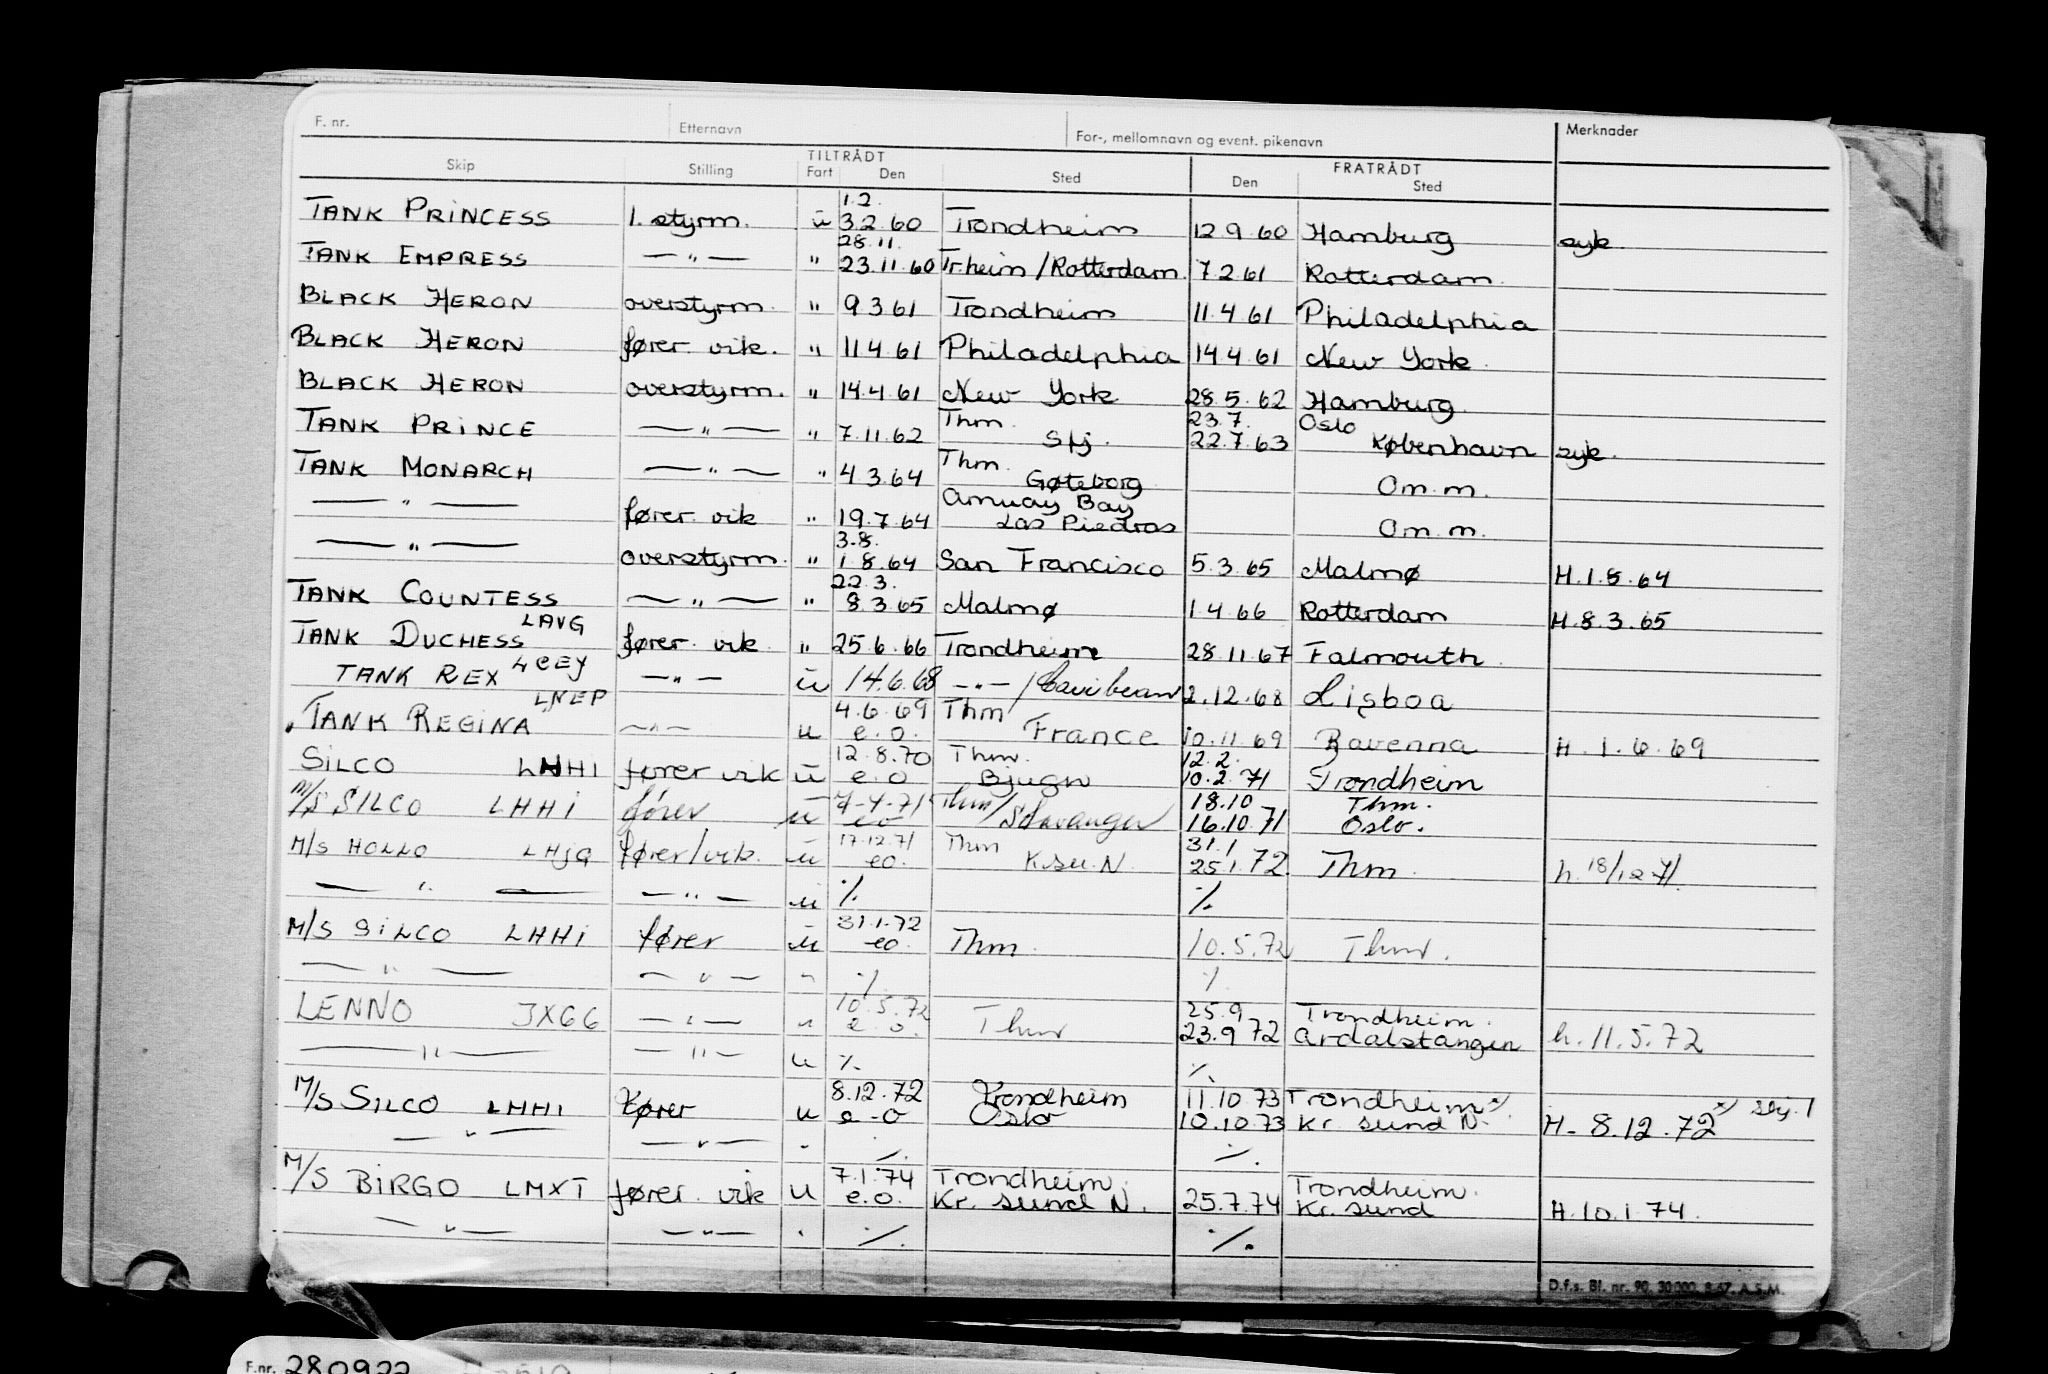 F. nr. Etternavn For-, mellomnavn og event. pikenavn Merknader
TILTRÅDT FRATRÅDT
Skip Stilling Fart Den Sted Den Sted
1.2.
TANK PRINCESS 1. styrm. u 3.2.60 Trondheim 12.9.60 Hamburg syk.
28.11.
TANK EMPRESS — " — " 23.11.60 Tr.heim/Rotterdam. 7.2.61 Rotterdam.
BLACK HERON overstyrm. " 9.3.61 Trondheim 11.4.61 Philadelphia
BLACK HERON fører vik. " 11.4.61 Philadelphia 14.4.61 New York.
BLACK HERON overstyrm. " 14.4.61 New York 28.5.62 Hamburg.
Thm. 23.7. Oslo
TANK PRINCE — " — " 7.11.62 Stj. 22.7.63 København syk.
Thm.
TANK MONARCH — " — " 4.3.64 Gøteborg Om.m.
Amuay Bay
— " — fører vik " 19.7.64 Las Piedras Om.m.
3.8.
— " — overstyrm. " 1.8.64 San Francisco 5.3.65 Malmø H.1.8.64
22.3.
TANK COUNTESS — " — " 8.3.65 Malmø 1.4.66 Rotterdam H.8.3.65
LAVG
TANK DUCHESS fører vik. " 25.6.66 Trondheim 28.11.67 Falmouth.
TANK REX LCEY — " — u 14.6.68 — " — /Caribean 2.12.68 Lisboa
LNEP 4.6.69 Thm
TANK REGINA — " — u e.o. France 10.11.69 Ravenna H.1.6.69
12.8.70 Thm. 12.2.
SILCO LHHI fører vik u e.o Bjugn 10.2.71 Trondheim
7-4-71 Thm/ 18.10 Thm.
M/S SILCO LHHI fører u eo Stavanger 16.10.71 Oslo.
17.12.71 Thm 31.1
M/S HOLLO LHJG fører/vik. u eo. K.su.N. 25.1.72 Thm. h. 18/12-71.
— " — — " — u ٪ ٪
31.1.72
M/S SILCO LHHI fører u eo. Thm. 10.5.72 Thm.
— " — — " — " ٪ ٪
10.5.72 25.9 Trondheim.
LENNO JXGG — " — u e.o. Thm 23.9.72 Årdalstangen h.11.5.72
— " — — " — u ٪ ٪
8.12.72 Trondheim 11.10.73 Trondheim x) x) stj.
M/S SILCO LHHI fører u e-o Oslo 10.10.73 Kr. sund N. H-8.12.72
— " — — " — " ٪ ٪
7.1.74 Trondheim. Trondheim.
M/S BIRGO LMXT fører vik u e.o. Kr. sund N. 25.7.74 Kr. sund H.10.1.74.
— " — — " — " ٪ ٪
D.f.s. Bl. nr. 90. 30 000. 8.67. A.S.M.
F.nr. 280922